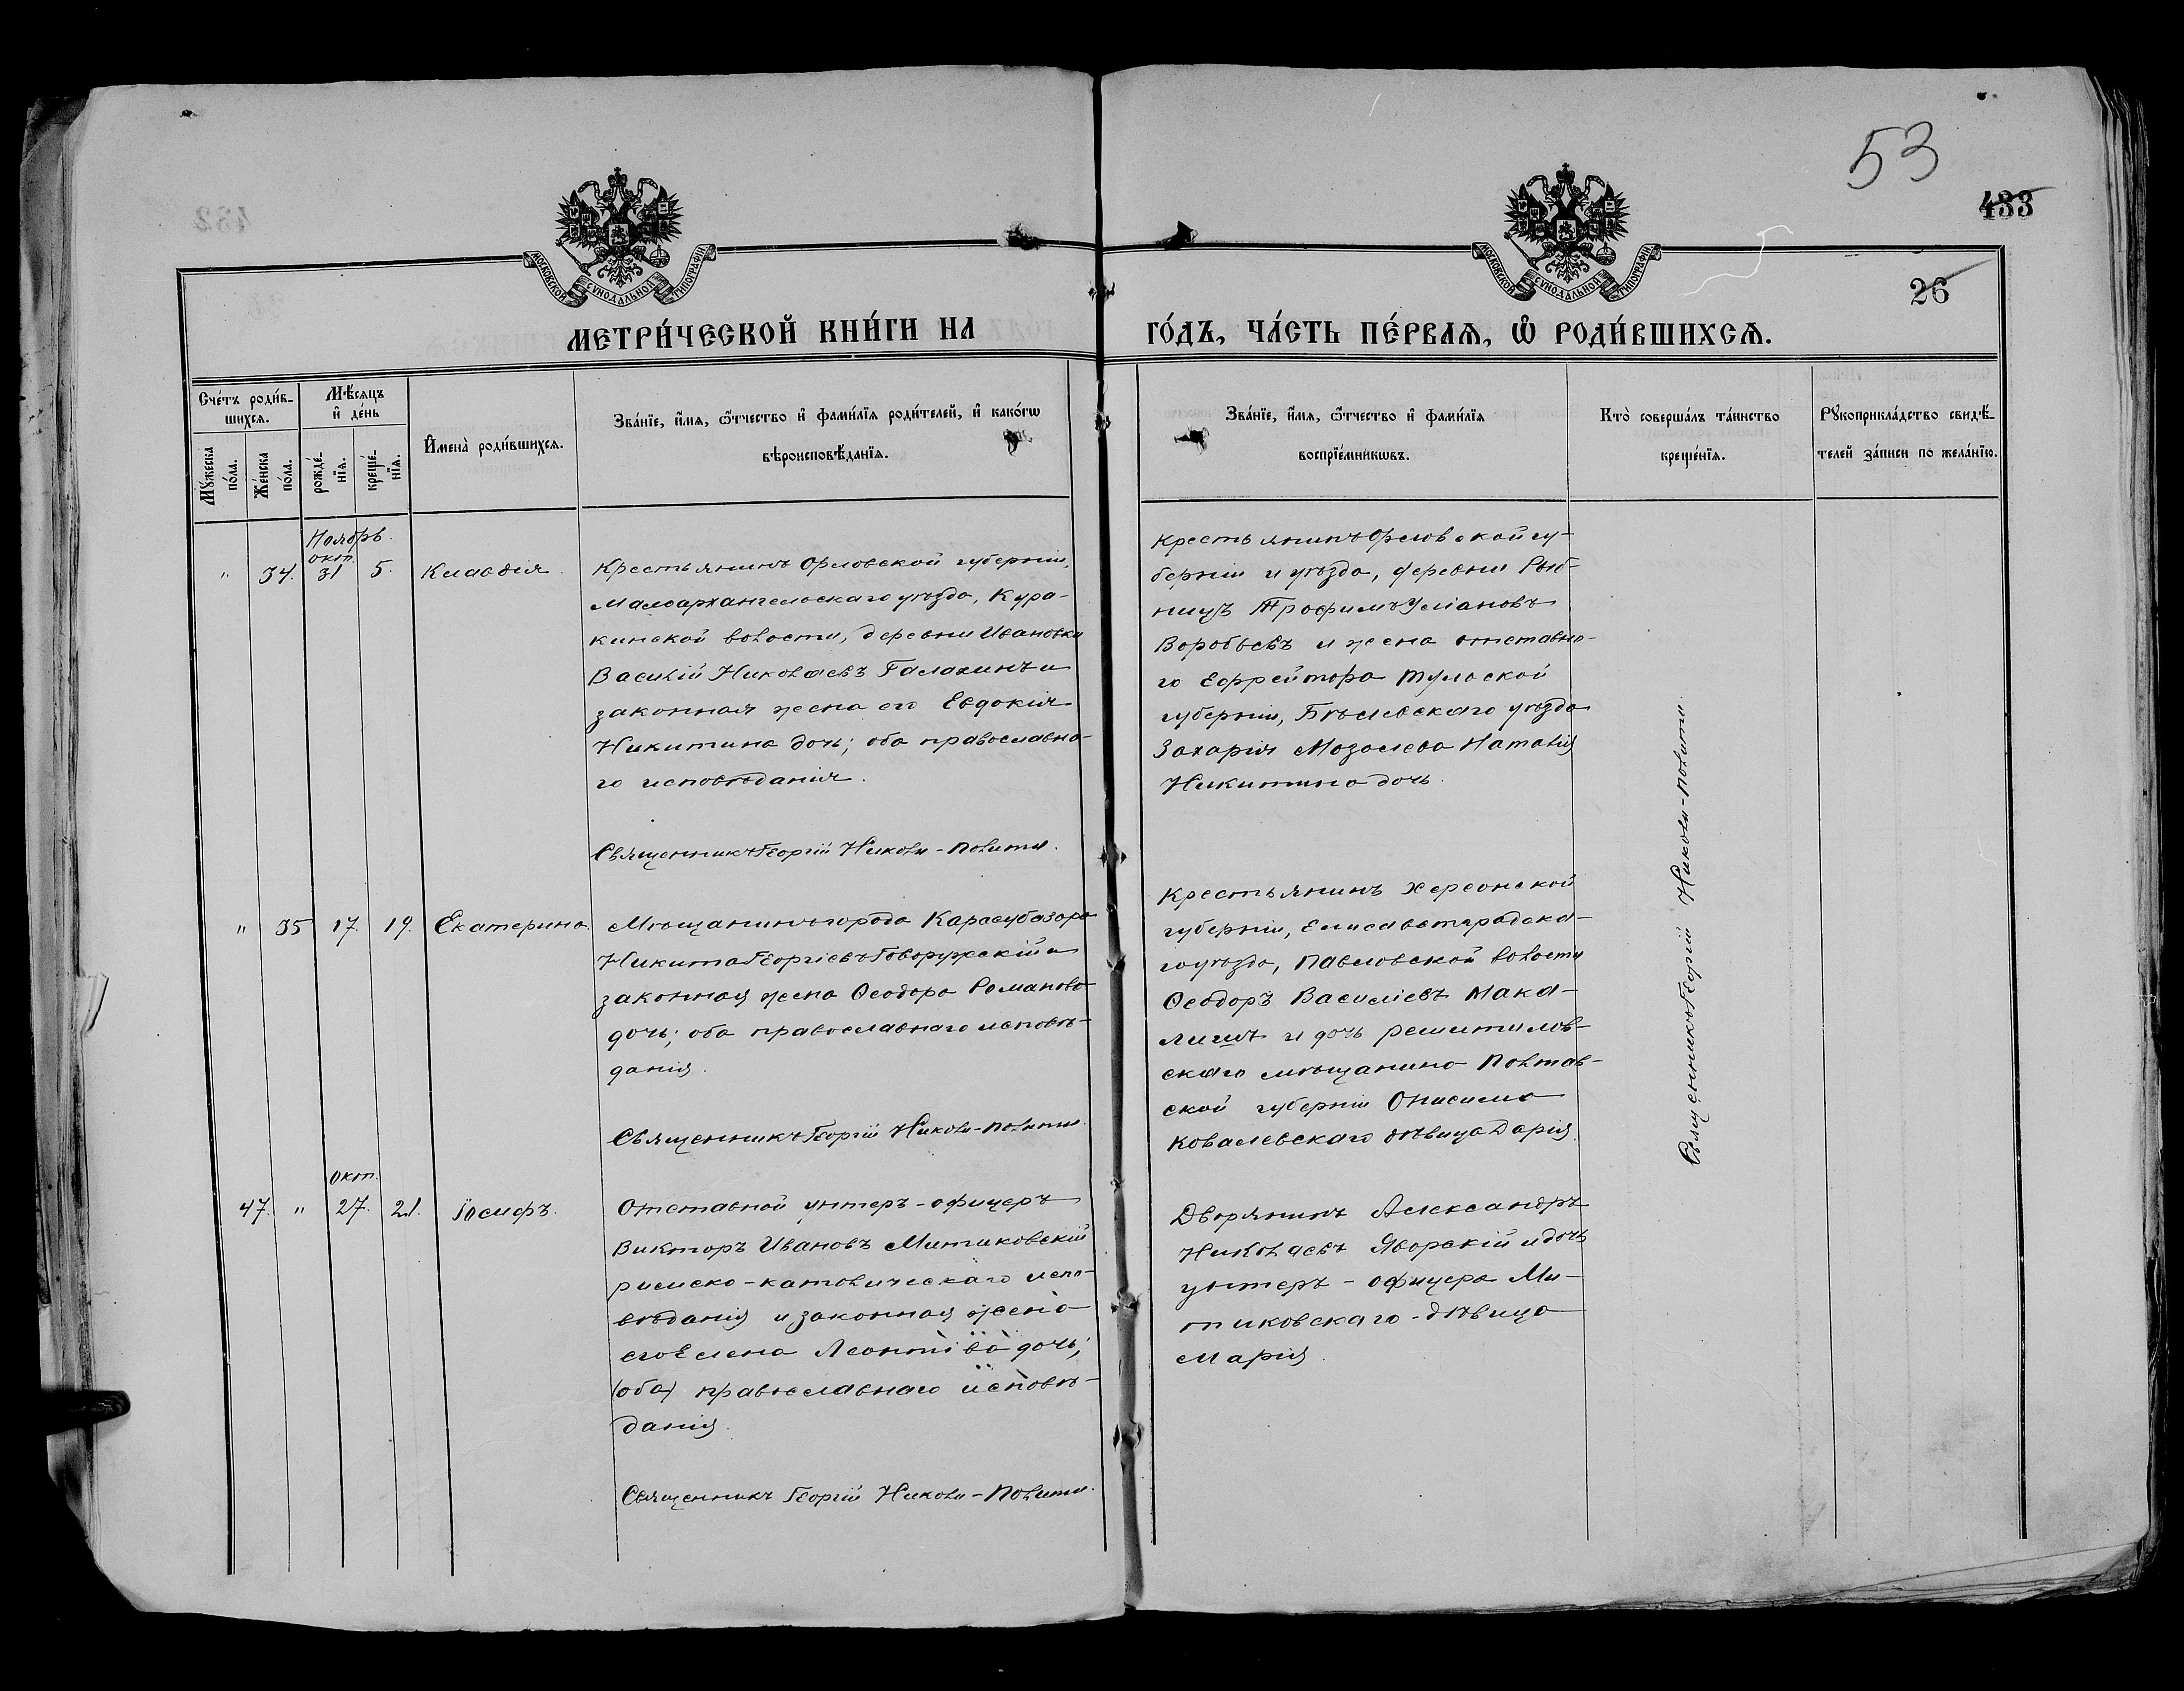 53
433
26
МОСКОВСКОЙ СѴНОДАЛЬНОЙ ТИПОГРАФІИ
МОСКОВСКОЙ СѴНОДАЛЬНОЙ ТИПОГРАФІИ
МЕТРИ́ЧЕСКОЙ КНИ́ГИ НА ГО́ДЪ, ЧА́СТЬ ПЕ́РВАѦ, Ѡ҆ РОДИ́ВШИХСѦ.
Сче́тъ роди́в-
шихсѧ.
Мѣ́сяцъ
и҆ де́нь
Мꙋ́жеска
по́ла.
Же́нска
по́ла.
рожде́-
нїѧ.
креще́-
нїѧ.
И҆мена̀ роди́вшихсѧ.
Зва́нїе, и҆́мѧ, ѻ҆́тчество и҆ фами́лїѧ роди́телей, и҆ како́гѡ
вѣроисповѣ́данїѧ.
Зва́нїе, и҆́мѧ, ѻ҆́тчество и҆ фами́лїѧ
воспрїе́мникѡвъ.
Кто̀ соверша́лъ та́инство
креще́нїѧ.
Рꙋкоприкла́дство свидѣ́-
телей за́писи по жела́нїю.
Ноябрь.
окт.
" 34. 31 5. Клавдія
Крестьянинъ Орловской губерніи,
Малоархангельскаго уѣзда, Кура-
кинской волости, деревни Ивановки
Василій Николаевъ Галахинъ и
законная жена его Евдокія
Никитина дочь; оба православна-
го исповѣданія.
Священникъ Георгій Николи-Полити.
Крестьянинъ Орловской гу-
берніи и уѣзда, деревни Рыб-
ницъ Трофимъ Уліановъ
Воробьевъ и жена отставно-
го Ефрейтора Тульской
губерніи, Бѣлевскаго уѣзда
Захарія Мозолева Наталія
Никитина дочь.
" 35 17. 19. Екатерина.
Мѣщанинъ города Карасубазара
Никита Георгіевъ Говоружскій и
законная жена Ѳеодора Романова
дочь; оба православнаго исповѣ-
данія.
Священникъ Георгій Николи-Полити.
Крестьянинъ Херсонской
губерніи, Елисаветградска-
го уѣзда, Павловской волости
Ѳеодоръ Василіевъ Мака-
лишъ и дочь решетилов-
скаго мѣщанина Полтав-
ской губерніи Онисима
Ковалевскаго дѣвица Дарія.
окт.
47. " 27. 21. Іосифъ.
Отставной унтеръ-офицеръ
Викторъ Ивановъ Митиковскій
римско-католическаго испо-
вѣданія и законная жена
его Елена Леонтіева дочь,
(оба) православнаго исповѣ-
данія.
Священникъ Георгій Николи-Полити.
Дворянинъ Александръ
Николаевъ Яворскій и дочь
унтеръ-офицера Ми-
тиковскаго-дѣвица
Марія.
Священникъ Георгій Николи-Полити